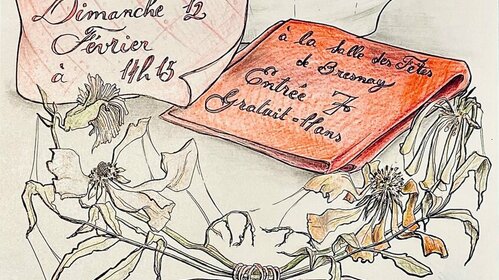 Dimanche 12
Février
à 14h15
à la salle des Fêtes
de Bresnay
Entrée 7
Gratuit -11ans